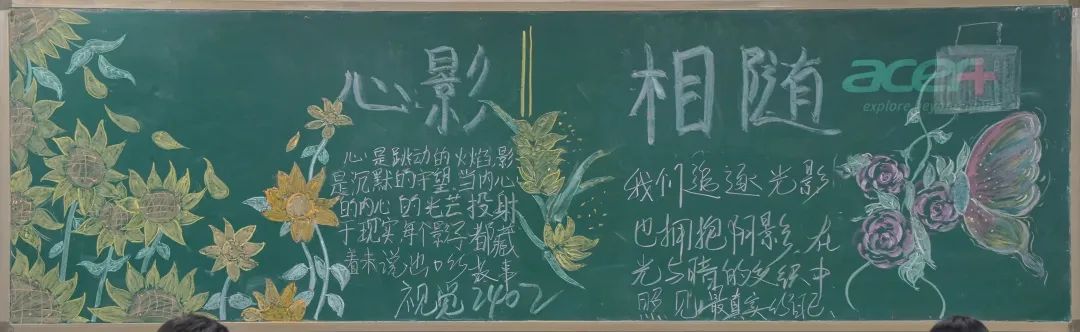 心影
相随
acer
explore beyond limits
心是跳动的火焰,影
是沉默的守望.当内心
的内心的光芒投射
于现实,每个影子都藏
着未说出口的故事
视觉2402
我们追逐光影
也拥抱阴影.在
光与暗的交织中
照见最真实的自己.